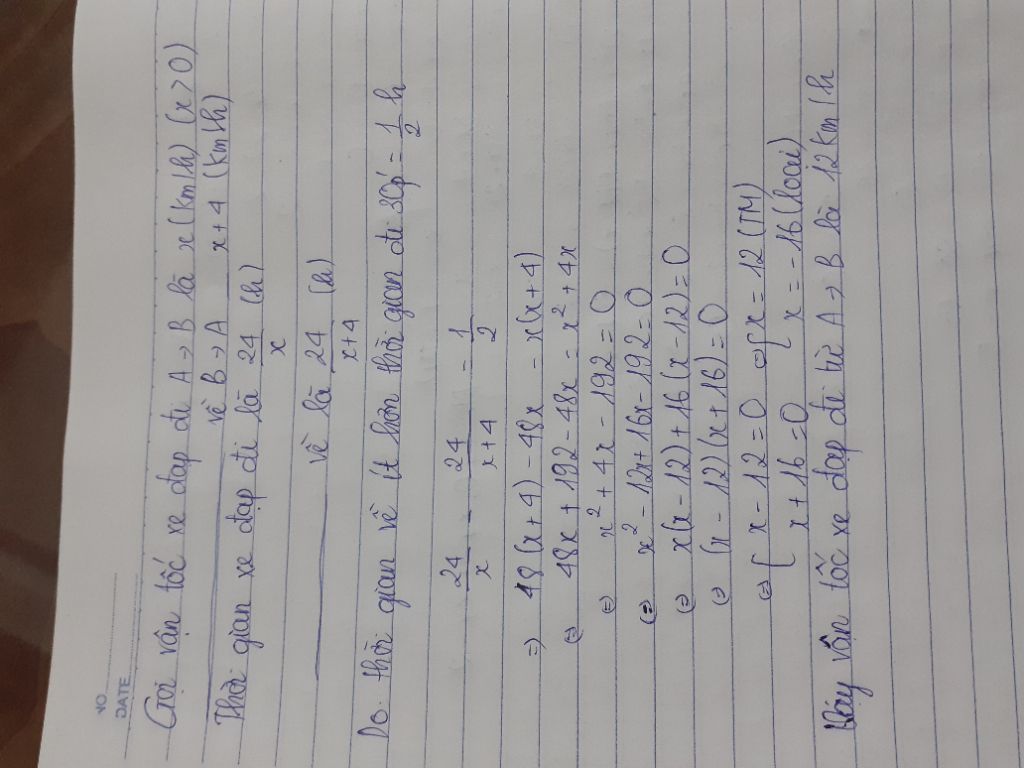 NO
DATE
Gọi vận tốc xe đạp đi A → B là x (km/h) (x > 0)
về B → A x + 4 (km/h)
Thời gian xe đạp đi là 24/x (h)
về là 24/(x+4) (h)
Do thời gian về ít hơn thời gian đi 30p' = 1/2 h
24/x - 24/(x+4) = 1/2
⇒ 48(x+4) - 48x = x(x+4)
⇔ 48x + 192 - 48x = x² + 4x
⇔ x² + 4x - 192 = 0
⇔ x² - 12x + 16x - 192 = 0
⇔ x(x - 12) + 16(x - 12) = 0
⇔ (x - 12)(x + 16) = 0
⇔ [ x - 12 = 0 ⇔ [ x = 12 (TM)
x + 16 = 0 x = -16 (loại)
Vậy vận tốc xe đạp đi từ A → B là 12 km/h